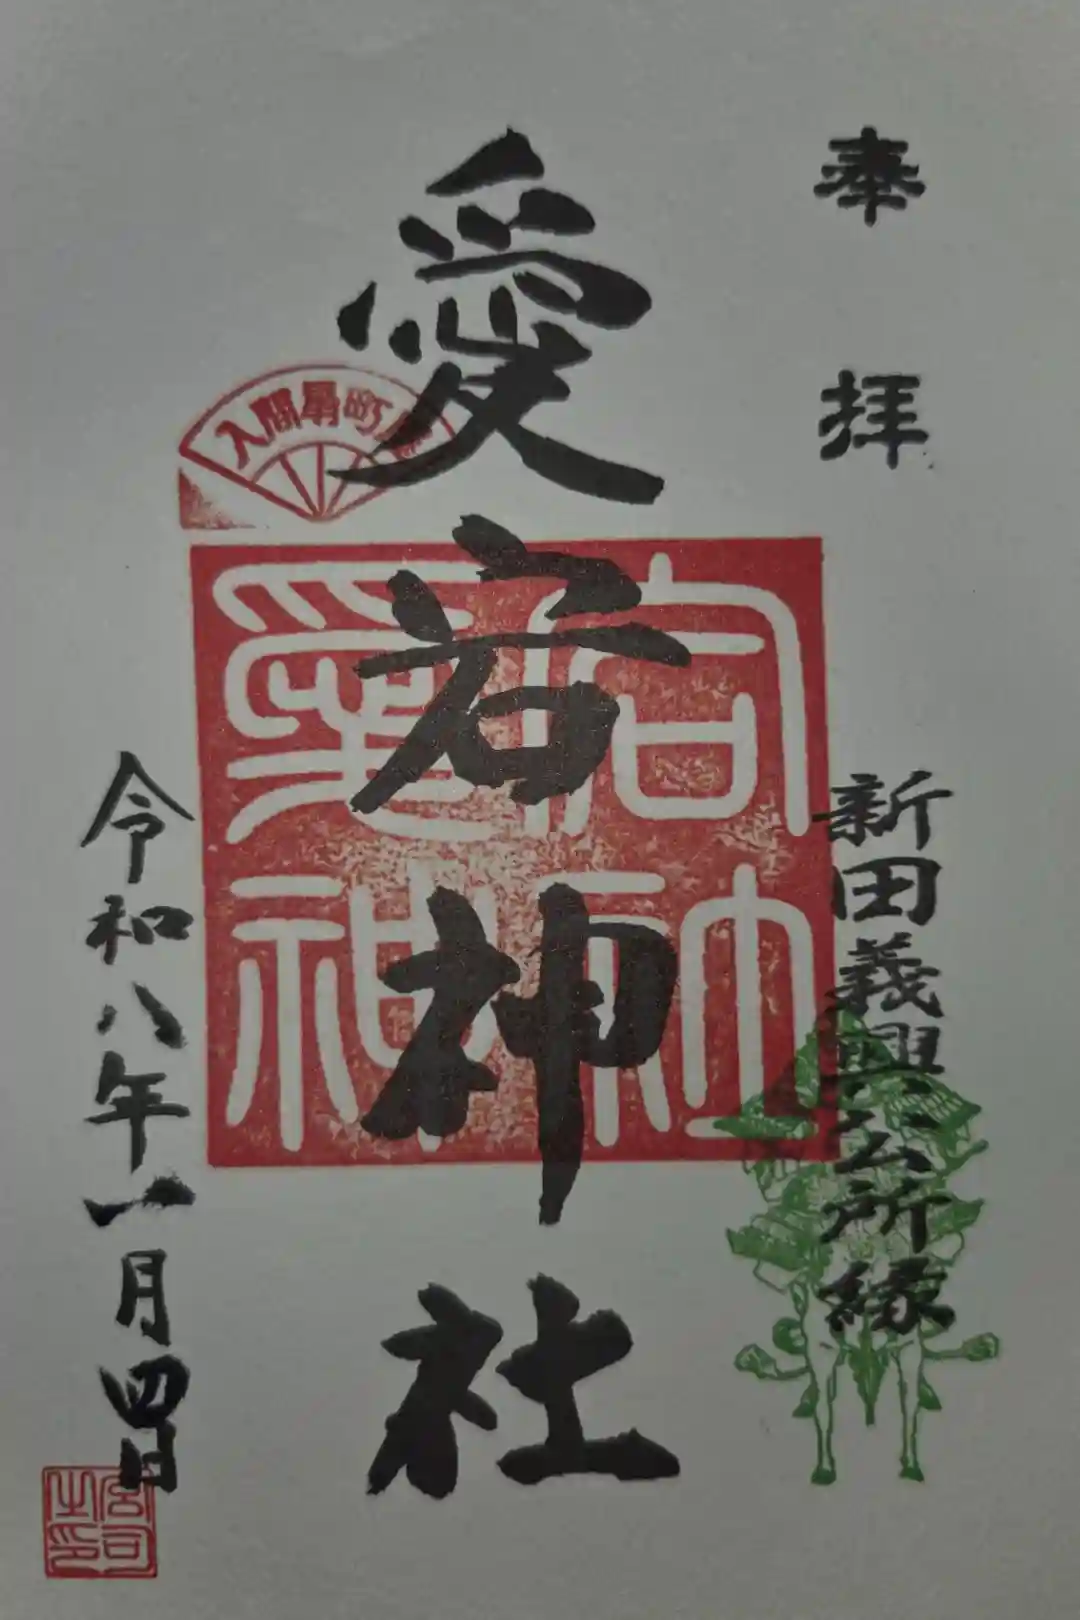 奉拝
新田義興公所縁
愛宕神社
入間扇町屋
愛宕神社
令和八年一月四日
宮司之印